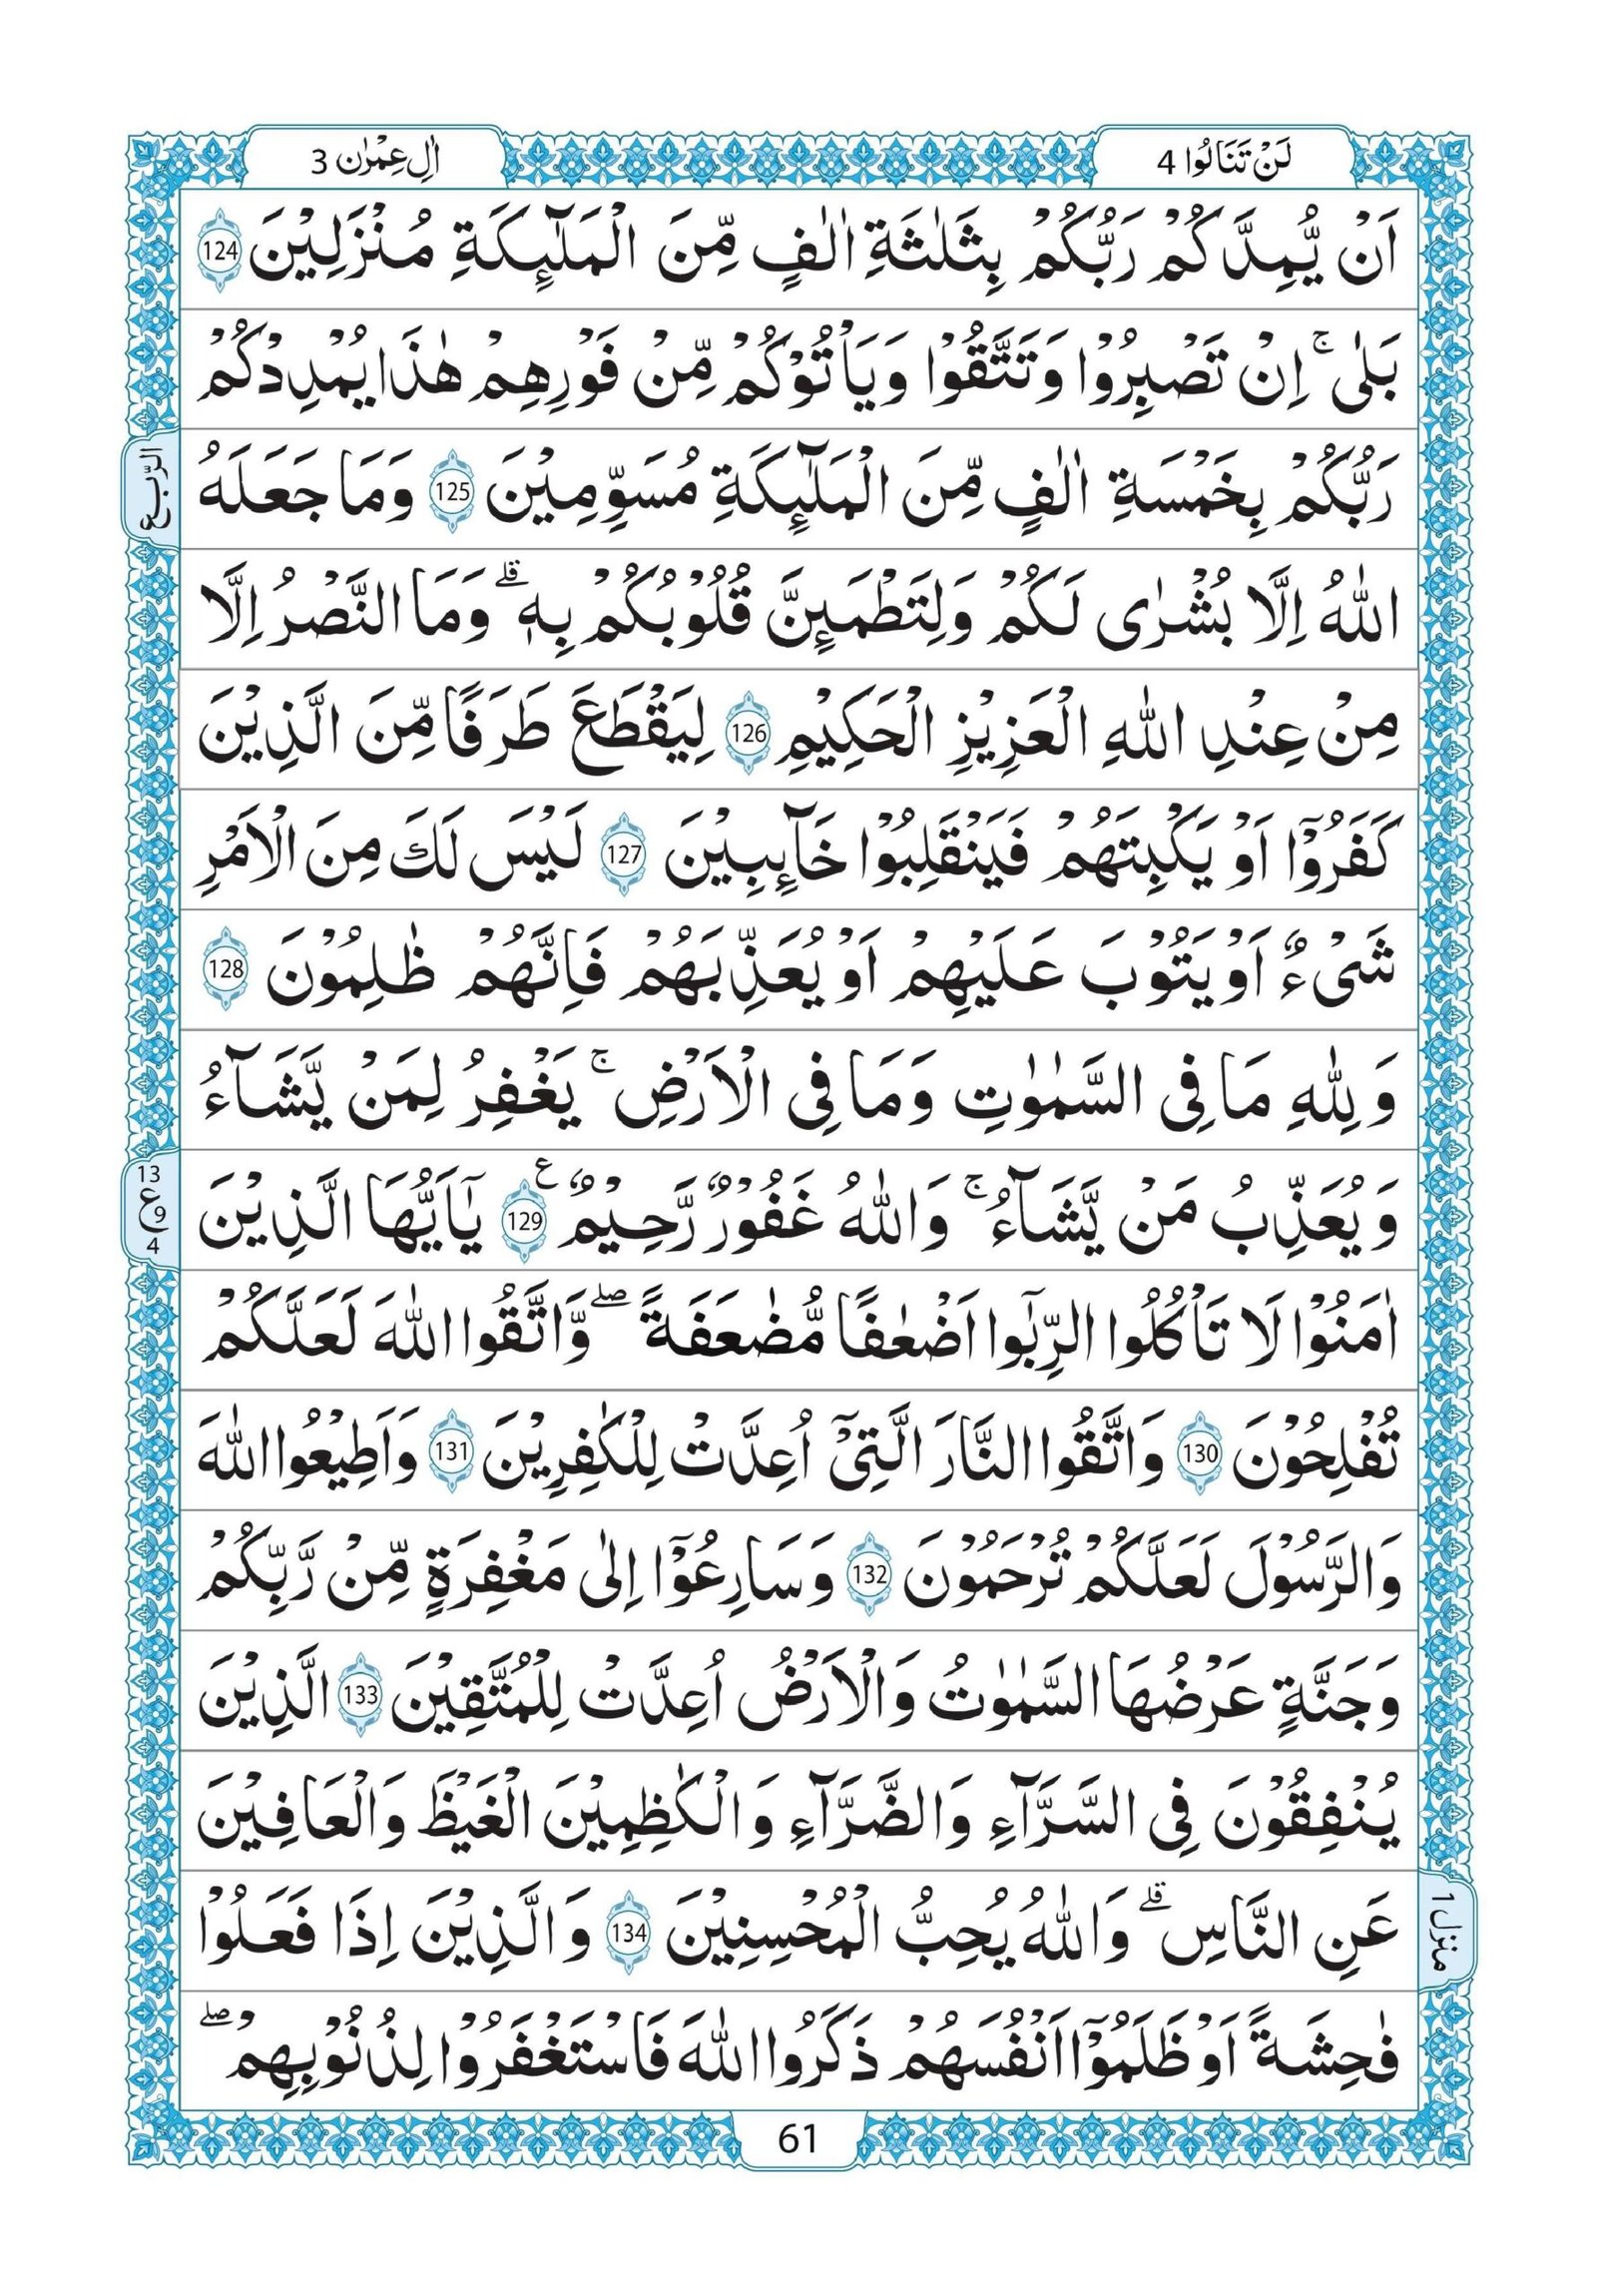 لَنْ تَنَالُوا 4
اٰلِ عِمْرٰن 3
اَنْ يُّمِدَّكُمْ رَبُّكُمْ بِثَلٰثَةِ اٰلٰفٍ مِّنَ الْمَلٰٓئِكَةِ مُنْزَلِيْنَ 124
بَلٰى ۚ اِنْ تَصْبِرُوْا وَتَتَّقُوْا وَيَاْتُوْكُمْ مِّنْ فَوْرِهِمْ هٰذَا يُمْدِدْكُمْ
رَبُّكُمْ بِخَمْسَةِ اٰلٰفٍ مِّنَ الْمَلٰٓئِكَةِ مُسَوِّمِيْنَ 125 وَمَا جَعَلَهُ
الرّبع
اللّٰهُ اِلَّا بُشْرٰى لَكُمْ وَلِتَطْمَئِنَّ قُلُوْبُكُمْ بِهٖ ۗ وَمَا النَّصْرُ اِلَّا
مِنْ عِنْدِ اللّٰهِ الْعَزِيْزِ الْحَكِيْمِ 126 لِيَقْطَعَ طَرَفًا مِّنَ الَّذِيْنَ
كَفَرُوْٓا اَوْ يَكْبِتَهُمْ فَيَنْقَلِبُوْا خَآئِبِيْنَ 127 لَيْسَ لَكَ مِنَ الْاَمْرِ
شَىْءٌ اَوْ يَتُوْبَ عَلَيْهِمْ اَوْ يُعَذِّبَهُمْ فَاِنَّهُمْ ظٰلِمُوْنَ 128
وَ لِلّٰهِ مَا فِى السَّمٰوٰتِ وَمَا فِى الْاَرْضِ ۚ يَغْفِرُ لِمَنْ يَّشَآءُ
وَ يُعَذِّبُ مَنْ يَّشَآءُ ۚ وَاللّٰهُ غَفُوْرٌ رَّحِيْمٌ 129 ع يٰٓاَيُّهَا الَّذِيْنَ
13
ع 9
4
اٰمَنُوْا لَا تَاْكُلُوا الرِّبٰٓوا اَضْعٰفًا مُّضٰعَفَةً ۖ وَّاتَّقُوا اللّٰهَ لَعَلَّكُمْ
تُفْلِحُوْنَ 130 وَاتَّقُوا النَّارَ الَّتِىْٓ اُعِدَّتْ لِلْكٰفِرِيْنَ 131 وَاَطِيْعُوا اللّٰهَ
وَالرَّسُوْلَ لَعَلَّكُمْ تُرْحَمُوْنَ 132 وَسَارِعُوْٓا اِلٰى مَغْفِرَةٍ مِّنْ رَّبِّكُمْ
وَجَنَّةٍ عَرْضُهَا السَّمٰوٰتُ وَالْاَرْضُ اُعِدَّتْ لِلْمُتَّقِيْنَ 133 الَّذِيْنَ
يُنْفِقُوْنَ فِى السَّرَّآءِ وَالضَّرَّآءِ وَالْكٰظِمِيْنَ الْغَيْظَ وَالْعَافِيْنَ
عَنِ النَّاسِ ۗ وَاللّٰهُ يُحِبُّ الْمُحْسِنِيْنَ 134 وَالَّذِيْنَ اِذَا فَعَلُوْا
منزل 1
فٰحِشَةً اَوْ ظَلَمُوْٓا اَنْفُسَهُمْ ذَكَرُوا اللّٰهَ فَاسْتَغْفَرُوْا لِذُنُوْبِهِمْ ۖ
61